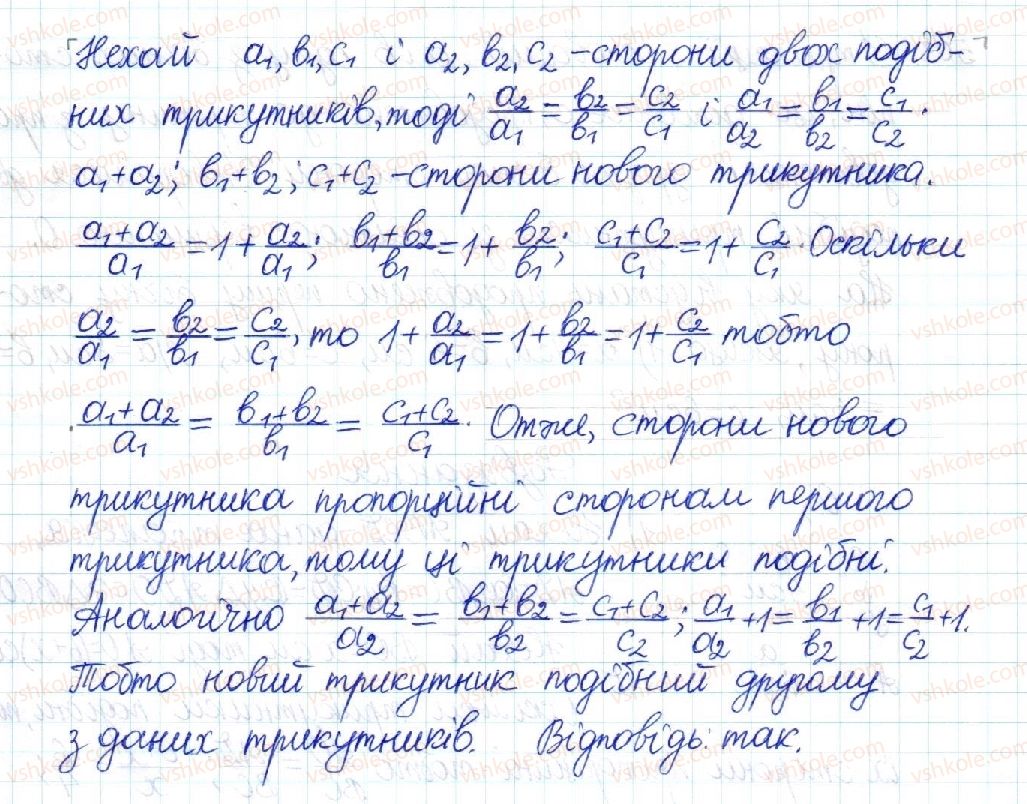 Нехай a₁, b₁, c₁ і a₂, b₂, c₂ – сторони двох подіб-
них трикутників, тоді a₂/a₁ = b₂/b₁ = c₂/c₁ і a₁/a₂ = b₁/b₂ = c₁/c₂.
a₁+a₂; b₁+b₂; c₁+c₂ – сторони нового трикутника.
(a₁+a₂)/a₁ = 1 + a₂/a₁; (b₁+b₂)/b₁ = 1 + b₂/b₁; (c₁+c₂)/c₁ = 1 + c₂/c₁. Оскільки
a₂/a₁ = b₂/b₁ = c₂/c₁, то 1 + a₂/a₁ = 1 + b₂/b₁ = 1 + c₂/c₁ тобто
(a₁+a₂)/a₁ = (b₁+b₂)/b₁ = (c₁+c₂)/c₁. Отже, сторони нового
трикутника пропорційні сторонам першого
трикутника, тому ці трикутники подібні.
Аналогічно (a₁+a₂)/a₂ = (b₁+b₂)/b₂ = (c₁+c₂)/c₂; a₁/a₂ + 1 = b₁/b₂ + 1 = c₁/c₂ + 1.
Тобто новий трикутник подібний другому
з даних трикутників. Відповідь: так.